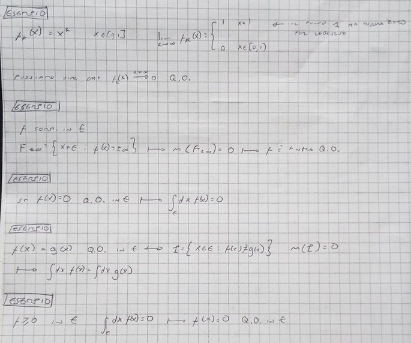 ESEMPIO
f_k(x) = x^k x∈[0,1] lim_{k→∞} f_k(x) = { 1 x=1
0 x∈[0,1)
possiamo dire che f_k(x) → 0 Q.O.
ESEMPIO
f in E
F_{±∞} = { x∈E : f(x)=±∞ } ⟼ m(F_{±∞}) = 0 ⟼ f è finita Q.O.
ESEMPIO
se f(x)=0 Q.O. in E ⟼ ∫_E dx f(x) = 0
ESEMPIO
f(x) = g(x) Q.O. in E ⟷ I = { x∈E : f(x)≠g(x) } m(I) = 0
⟼ ∫dx f(x) = ∫dx g(x)
ESEMPIO
f≥0 in E ∫_E dx f(x) = 0 ⟼ f(x) = 0 Q.O. in E